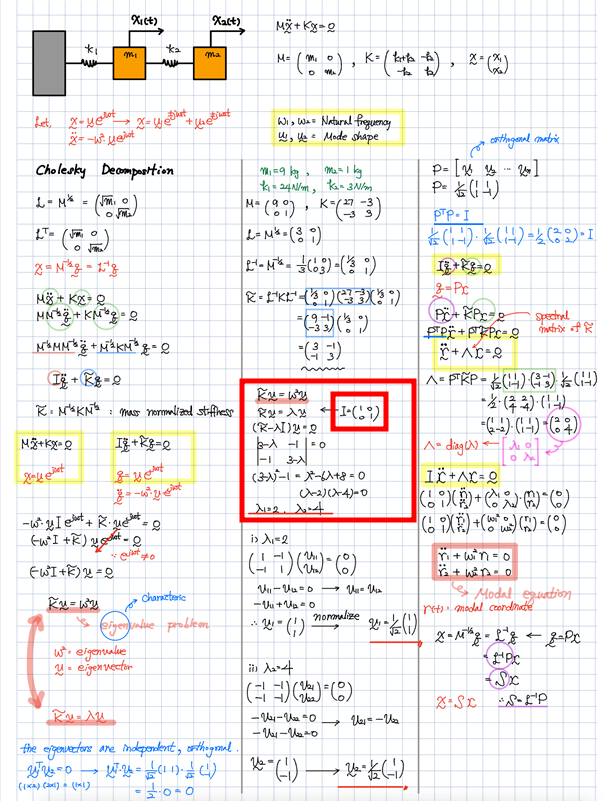 x₁(t)
x₂(t)
k₁
m₁
k₂
m₂
Mẍ+Kx=0
M = (m₁ 0 / 0 m₂) , K = (k₁+k₂ -k₂ / -k₂ k₂) , x = (x₁ / x₂)
Let, x = u e^{jωt} → x = u₁e^{±jω₁t} + u₂e^{±jω₂t}
ẍ = -ω²·u e^{jωt}
ω₁, ω₂ = Natural frequency
u₁, u₂ = Mode shape
Cholesky Decomposition
L = M^{1/2} = (√m₁ 0 / 0 √m₂)
L^T = (√m₁ 0 / 0 √m₂)
x = M^{-1/2}q = L^{-1}q
Mẍ + Kx = 0
MM^{-1/2}q̈ + KM^{-1/2}q = 0
M^{-1/2}MM^{-1/2}q̈ + M^{-1/2}KM^{-1/2}q = 0
Iq̈ + K̃q = 0
K̃ = M^{-1/2}KM^{-1/2} : mass normalized stiffness
Mẍ+Kx=0
x=u e^{jωt}
Iq̈+K̃q=0
q = v e^{jωt}
q̈ = -ω²·v e^{jωt}
-ω²·v I e^{jωt} + K̃·v e^{jωt} = 0
(-ω²I + K̃) v e^{jωt} = 0
∵ e^{jωt} ≠ 0
(-ω²I + K̃) v = 0
K̃v = ω²v
characteristic
eigenvalue problem
ω² = eigenvalue
v = eigenvector
K̃v = λv
the eigenvectors are independent, orthogonal.
v₁^T v₂ = 0 → v₁^T·v₂ = 1/√2 (1 1)·1/√2 (1 / -1)
(1×2) (2×1) = (1×1)
= 1/2 · 0 = 0
m₁=9 kg , m₂=1 kg
k₁=24N/m , k₂=3N/m
M = (9 0 / 0 1) , K = (27 -3 / -3 3)
L = M^{1/2} = (3 0 / 0 1)
L^{-1} = M^{-1/2} = 1/3 (1 0 / 0 3) = (1/3 0 / 0 1)
K̃ = L^{-1}KL^{-1} = (1/3 0 / 0 1)(27 -3 / -3 3)(1/3 0 / 0 1)
= (9 -1 / -3 3)(1/3 0 / 0 1)
= (3 -1 / -1 3)
K̃v = ω²v
K̃v = λv ← I = (1 0 / 0 1)
(K̃-λI)v = 0
|3-λ -1 / -1 3-λ| = 0
(3-λ)²-1 = λ²-6λ+8 = 0
(λ-2)(λ-4)=0
λ₁=2, λ₂=4
i) λ₁=2
(1 -1 / -1 1)(v₁₁ / v₁₂) = (0 / 0)
v₁₁ - v₁₂ = 0 → v₁₁ = v₁₂
-v₁₁ + v₁₂ = 0
∴ v₁ = (1 / 1) normalize → v₁ = 1/√2 (1 / 1)
ii) λ₂=4
(-1 -1 / -1 -1)(v₂₁ / v₂₂) = (0 / 0)
-v₂₁ - v₂₂ = 0 → v₂₁ = -v₂₂
-v₂₁ - v₂₂ = 0
v₂ = (1 / -1) → v₂ = 1/√2 (1 / -1)
orthogonal matrix
P = [v₁ v₂ ··· vₙ]
P = 1/√2 (1 1 / 1 -1)
P^TP = I
1/√2 (1 1 / 1 -1)·1/√2 (1 1 / 1 -1) = 1/2 (2 0 / 0 2) = I
Iq̈ + K̃q = 0
q = Pr
Pr̈ + K̃Pr = 0
P^TPr̈ + P^TK̃Pr = 0
spectral matrix of K̃
r̈ + Λr = 0
Λ = P^TK̃P = 1/√2 (1 1 / 1 -1)·(3 -1 / -1 3)·1/√2 (1 1 / 1 -1)
= 1/2·(2 2 / 4 -4)·(1 1 / 1 -1)
= (1 1 / 2 -2)·(1 1 / 1 -1) = (2 0 / 0 4)
Λ = diag(λ) ← [λ₁ 0 / 0 λ₂]
Ir̈ + Λr = 0
(1 0 / 0 1)(r̈₁ / r̈₂) + (λ₁ 0 / 0 λ₂)·(r₁ / r₂) = (0 / 0)
(1 0 / 0 1)(r̈₁ / r̈₂) + (ω₁² 0 / 0 ω₂²)(r₁ / r₂) = (0 / 0)
r̈₁ + ω₁²r₁ = 0
r̈₂ + ω₂²r₂ = 0
Modal equation
r(t) = modal coordinate
x = M^{-1/2}q = L^{-1}q ← q = Pr
= L^{-1}Pr
= Sr
x = Sr ∴ S = L^{-1}P